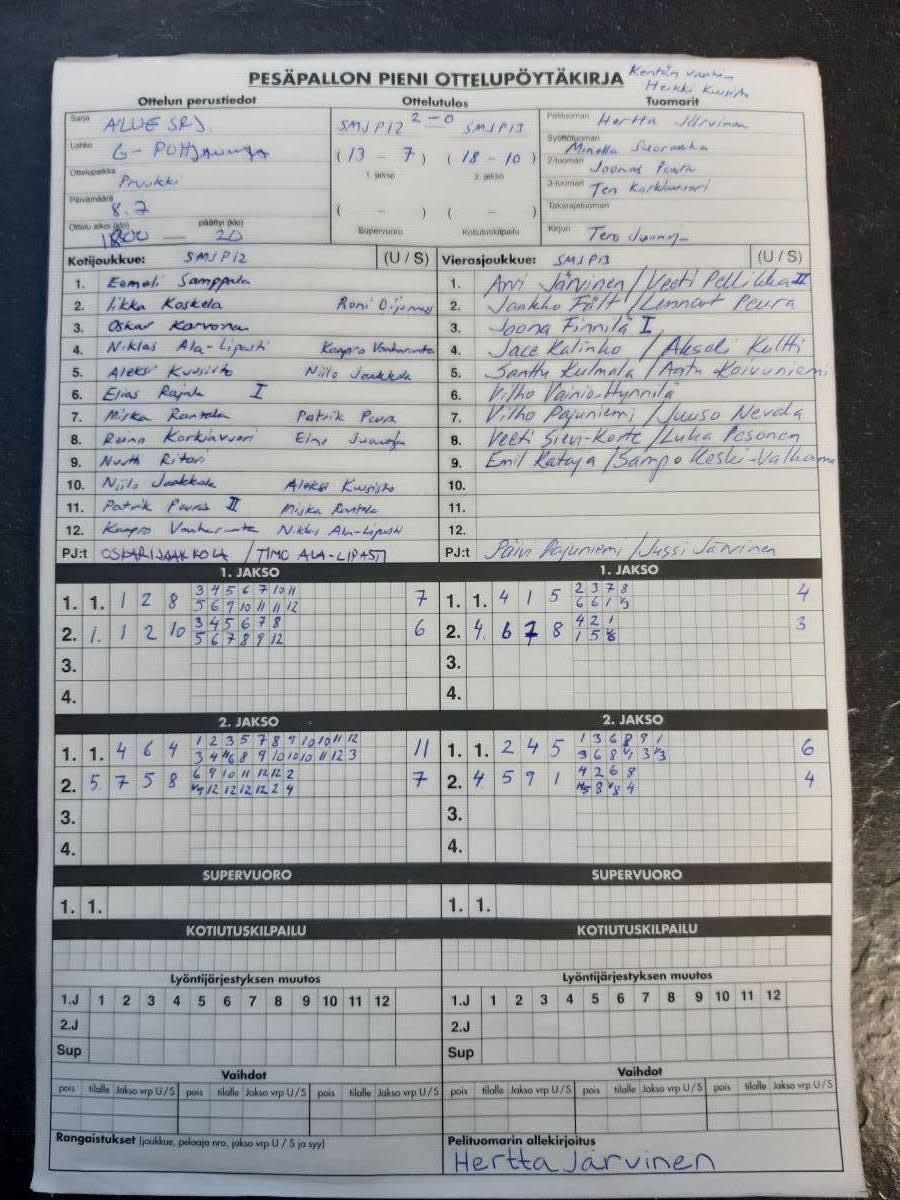 PESÄPALLON PIENI OTTELUPÖYTÄKIRJA
Kentän
Heikki
Ottelun perustiedot
Ottelutulos
Tuomarit
Sarja ALUE SRJ.
Lohko G-
Ottelupaikka Pruukki
Päivämäärä 8.7
Ottelu alkoi (klo) 1800 — päättyi (klo) 20
2 - 0
SMJ P12 SMJ P13
(13 - 7) (18 - 10)
1. jakso 2. jakso
( - ) ( - )
Supervuoro Kotiutuskilpailu
Pelituomari Hertta Järvinen
Syöttötuomari Minella
2-tuomari Joonas Peura
3-tuomari
Takarajatuomari
Kirjuri Tero
Kotijoukkue: SMJP12 (U / S)
1. Eemeli Samppala
2. Iikka Koskela Roni
3. Oskar Karvonen
4. Niklas Ala-Lipasti Kaapro Vanharanta
5. Aleksi Kuusisto Niilo Jaakkola
6. Elias Rajala I
7. Miska Rantala Patrik Peura
8. Korkiavuori Eino
9. Nuutti Ritari
10. Niilo Jaakkola Aleksi Kuusisto
11. Patrik Peura II Miska Rantala
12. Kaapro Vanharanta Niklas Ala-Lipasti
PJ:t OSKARI JAAKKOLA / TIMO ALA-LIPASTI
Vierasjoukkue: SMJ P13 (U / S)
1. Arvi Järvinen / Veeti Pellikka II
2. Jaakko Fält / Lennart Peura
3. Joona Finnilä I
4. Jace Kalinko / Akseli Kultti
5. Santtu Kulmala / Aatu Koivuniemi
6. Vilho Vainio-Hynnilä
7. Vilho Pajuniemi / Juuso Nevala
8. Veeti Sievi-Korte / Luka Pesonen
9. Emil Kataja / Sampo Keski-Valkama
10.
11.
12.
PJ:t Päivi Pajuniemi / Jussi Järvinen
1. JAKSO
1. 1. 1 2 8 3 4 5 6 7 10 11 7
5 6 9 10 11 11 12
2. 1. 1 2 10 3 4 5 6 7 8 6
5 6 7 8 9 12
3.
4.
1. JAKSO
1. 1. 4 1 5 2 3 7 8 4
6 6 1 1/3
2. 4. 6 7 8 4 2 1 3
1 5
3.
4.
2. JAKSO
1. 1. 4 6 4 1 2 3 5 7 8 9 10 10 11 12 11
3 4 6 8 9 10 10 10 11 12 3
2. 5 7 5 8 6 9 10 11 12 12 2 7
12 12 12 12 2 4
3.
4.
2. JAKSO
1. 1. 2 4 5 1 3 6 8 9 1 6
3 6 8 1/1 3 1/3
2. 4. 5 9 1 4 2 6 8 4
8 4
3.
4.
SUPERVUORO
1. 1.
SUPERVUORO
1. 1.
KOTIUTUSKILPAILU
KOTIUTUSKILPAILU
Lyöntijärjestyksen muutos
1.J 1 2 3 4 5 6 7 8 9 10 11 12
2.J
Sup
Lyöntijärjestyksen muutos
1.J 1 2 3 4 5 6 7 8 9 10 11 12
2.J
Sup
Vaihdot
pois tilalle Jakso vrp U / S pois tilalle Jakso vrp U / S pois tilalle Jakso vrp U / S
Vaihdot
pois tilalle Jakso vrp U / S pois tilalle Jakso vrp U / S pois tilalle Jakso vrp U / S
Rangaistukset (joukkue, pelaaja nro, jakso vrp U / S ja syy)
Pelituomarin allekirjoitus
Hertta Järvinen